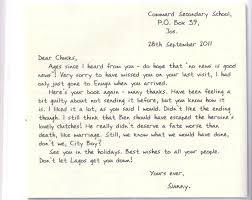 Command Secondary School,
P.O. Box 39,
Jos.
28th September 2011
Dear Chucks,
Ages since I heard from you - do hope that 'no news is good
news'! Very sorry to have missed you on your last visit, I had
only just gone to Enugu when you arrived.
Here's your book again - many thanks. Have been feeling a
bit guilty about not sending it before, but you know how it
is. I liked it a lot, as you said I would. Didn't like the ending
though. I still think that Ben should have escaped the heroine's
lovely clutches! He really didn't deserve a fate worse than
death, like marriage. Still, we know what we would have done,
don't we, City Boy?
See you in the holidays. Best wishes to all your people.
Don't let Lagos get you down!
Yours ever,
Sunny.